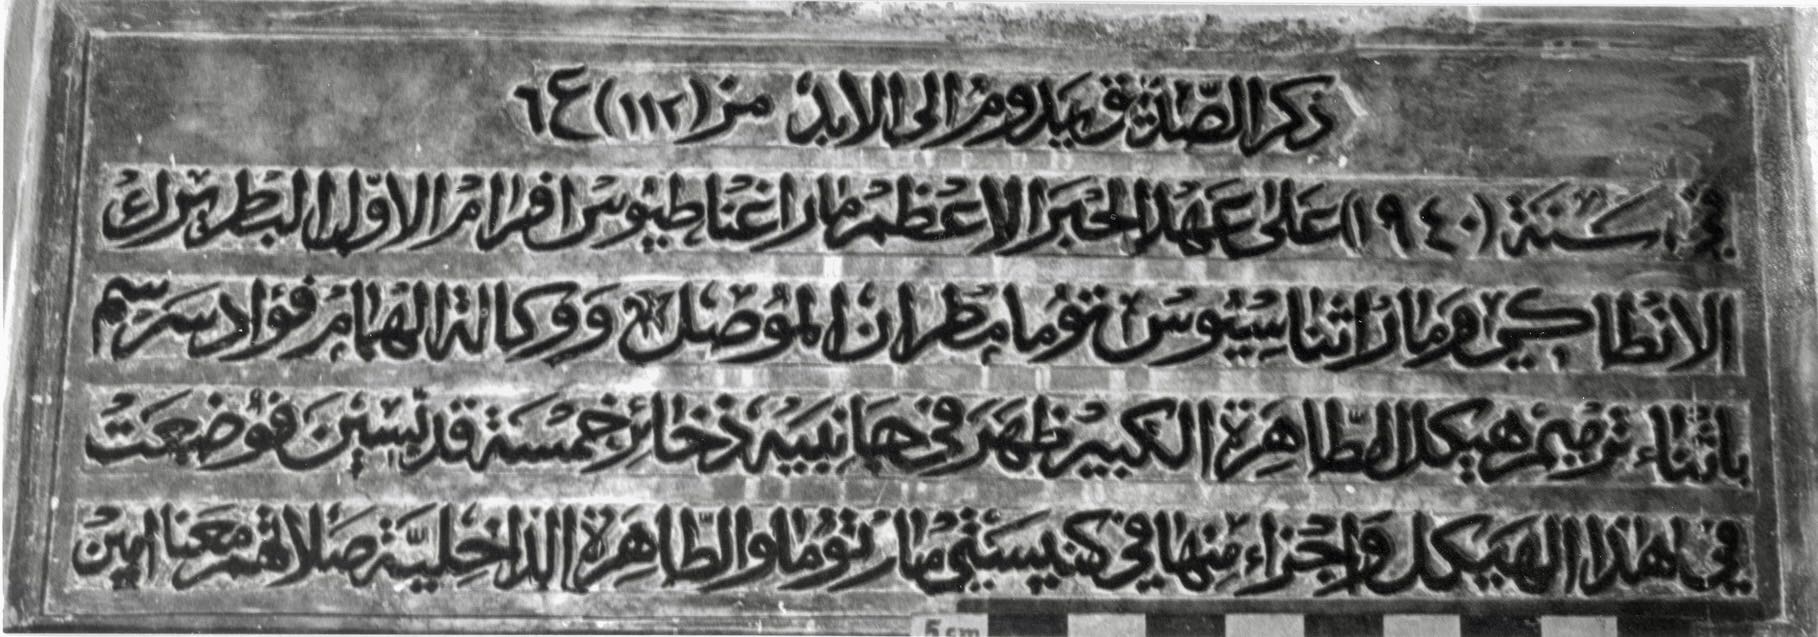 ذكر الصّدّيق يدوم الى الابد من (١١٢) ع ٦
في سنة (١٩٤٠) على عهد الحبر الاعظم مار اغناطيوس افرام الاوّل البطريرك
الانطاكي ومار اثناسيوس توما مطران الموصل ووكالة الهمام فؤاد سرسم
باثناء ترميم هيكل الطّاهرة الكبير ظهر في جانبيه ذخائر خمسة قدّيسين فوضعت
في هذا الهيكل واجزاء منها في كنيستي مار توما والطّاهرة الداخليّة صلاتهم معنا امين
5 cm